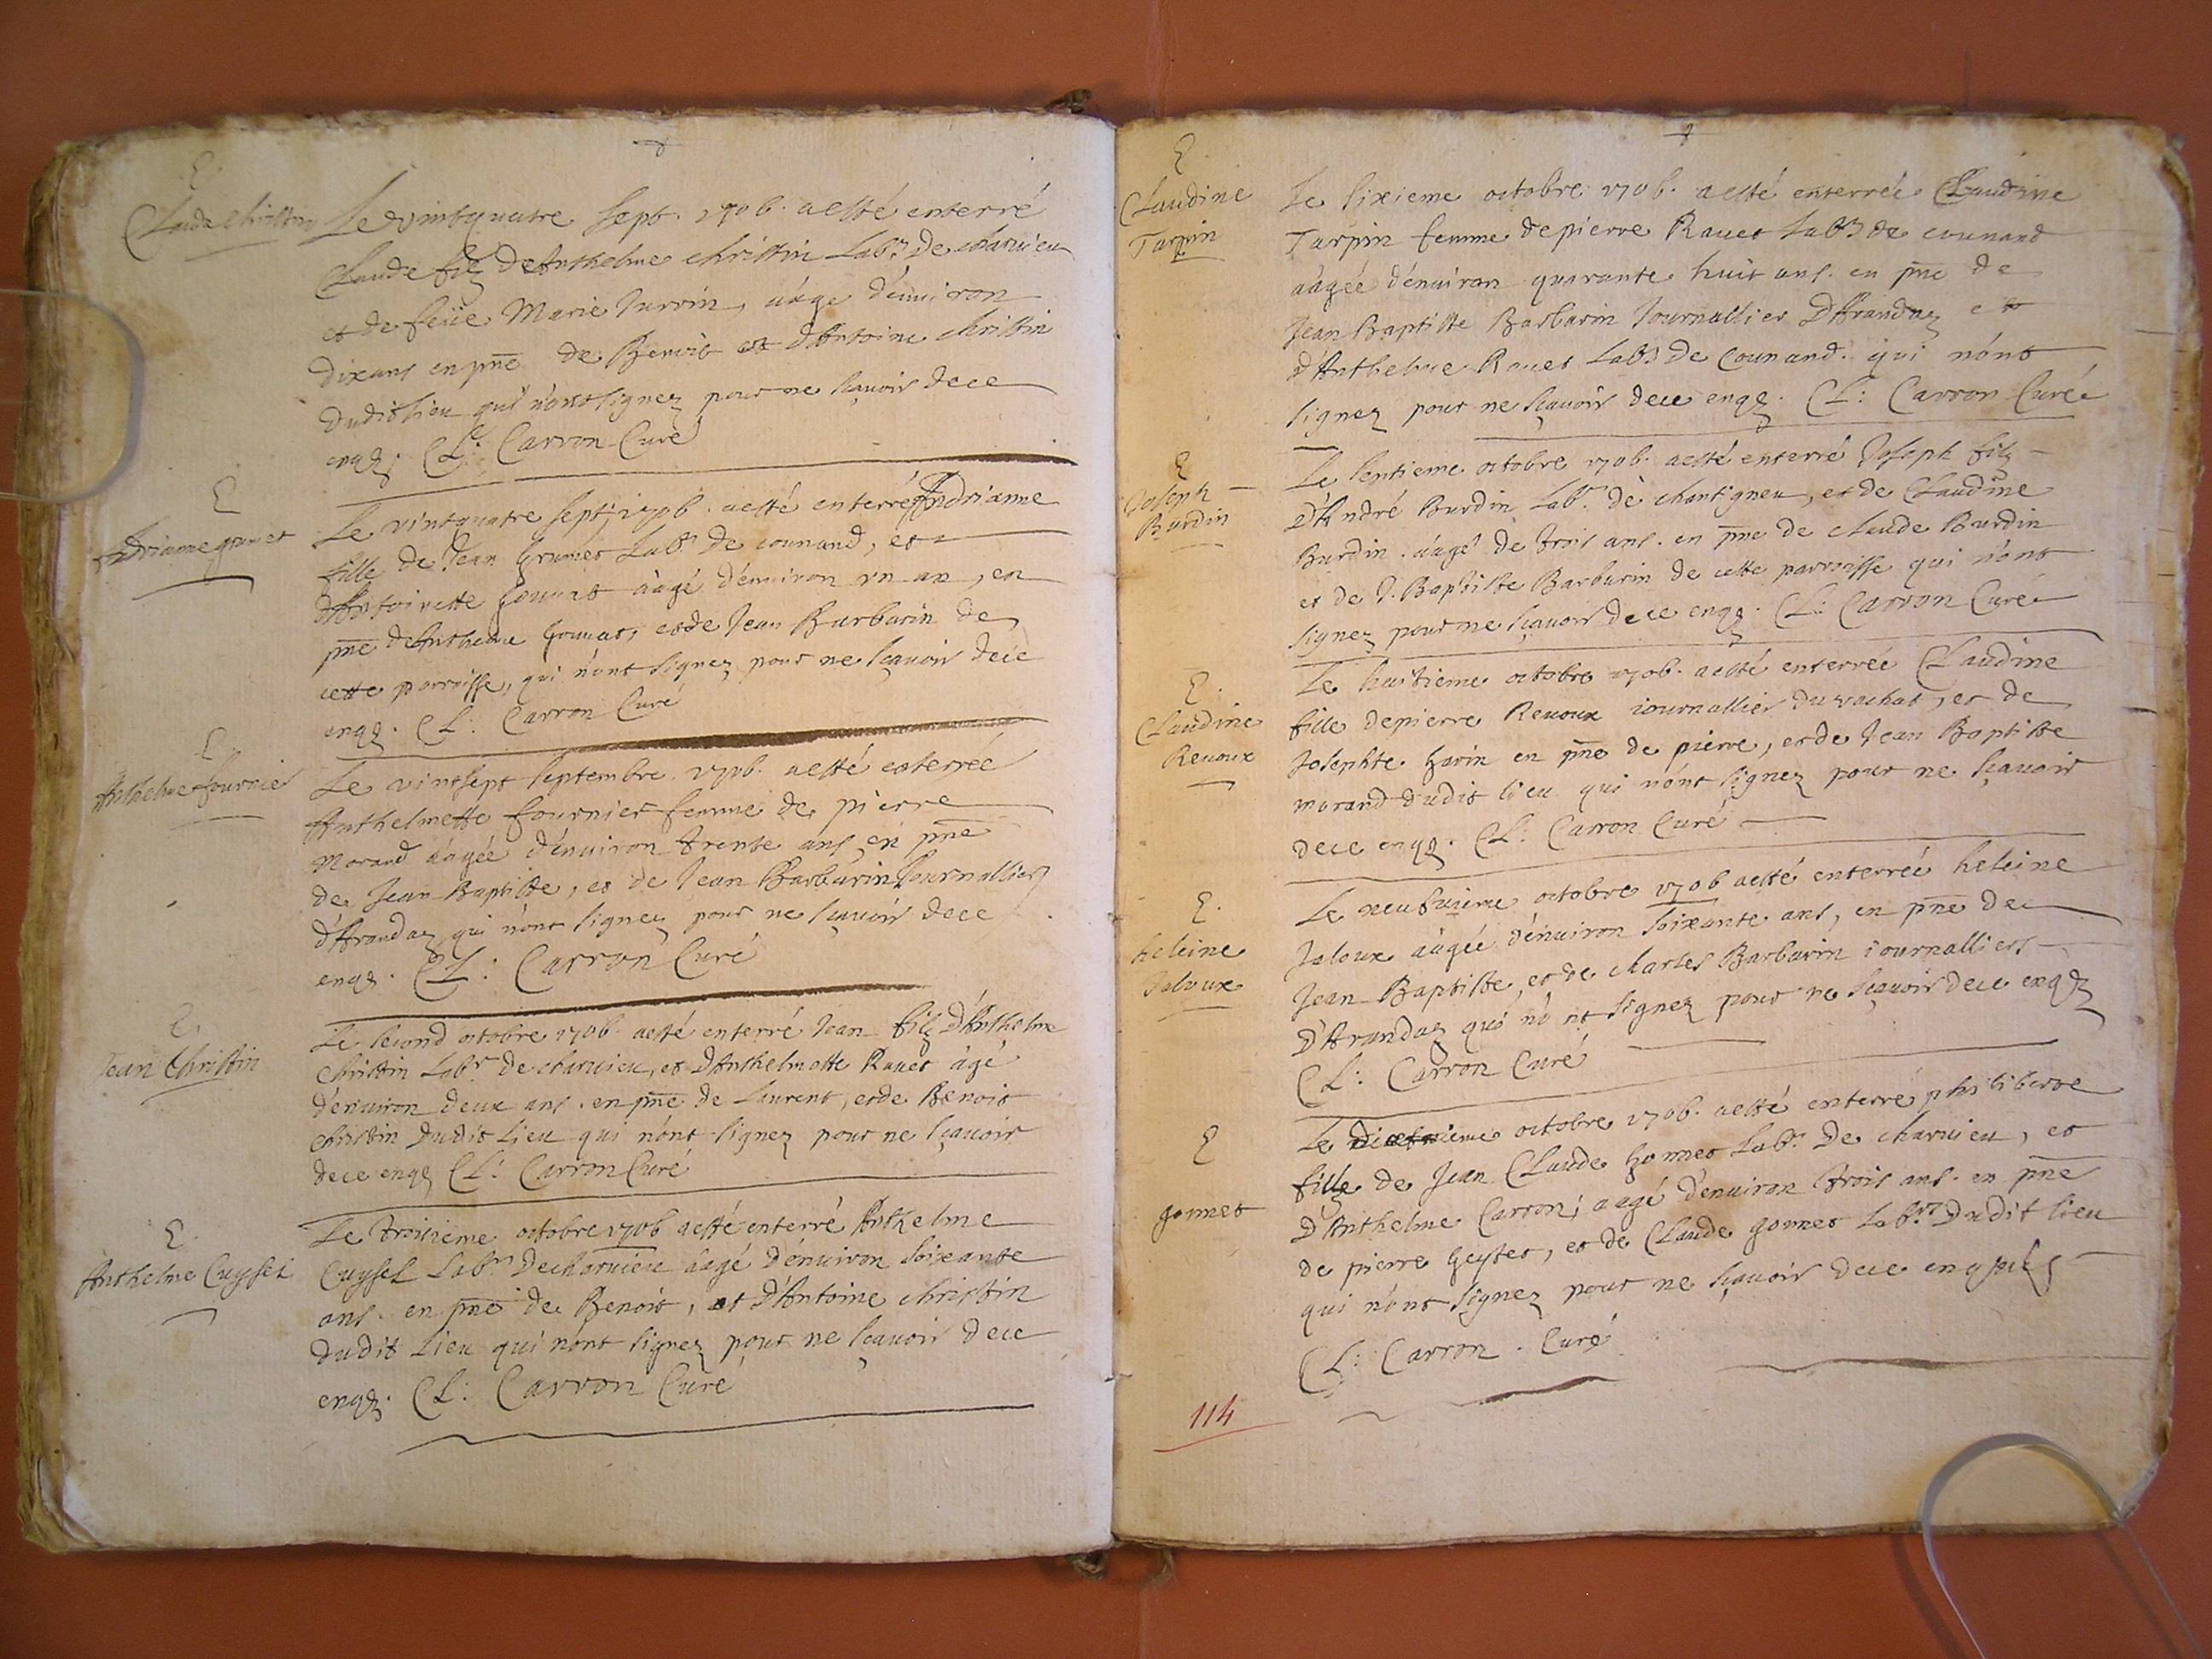 E.
Claude christin
Le vintquatre sept. 1706. a esté enterré
Claude filz d'Anthelme christin Labr. de charvieu
et de feüe Marie Jurrin, aage d'enuiron
dix ans en pñe de Benoit et d'Antoine christin
dudit lieu qui n'ont signez pour ne sçauoir de ce
enqz. CL: Carron Curé
E
Adrianne grumet
Le vintquatre sept. 1706. a esté enterré Andrianne
fille de Jean Grumet Labr. de counand, et
d'Antoinette gounat aagé d'enuiron vn an, en
pñe d'Anthelme Grumat, et de Jean Barbarin de
cette parroisse, qui n'ont signez pour ne sçauoir de ce
enqz. CL: Carron Curé
E.
Anthelme fournier
Le vintsept septembre 1706. a esté enterrée
Anthelmette fournier femme de pierre
Morand aagée d'enuiron trente ans, en pñe
de Jean Baptiste, et de Jean Barbarin Journallier
d'Arandaz qui n'ont signez pour ne sçauoir de ce
enqz. CL: Carron Curé
E.
Jean Christin
Le second octobre 1706. a esté enterré Jean filz d'Anthelme
christin Labr. de charuieu, et d'Anthelmette Rauet âgé
d'enuiron deux ans. en pñe de Laurent, et de Benoit
christin dudit Lieu qui n'ont signez pour ne sçauoir
de ce enqz CL: Carron Curé
E.
Anthelme Cuysset
Le troisieme octobre 1706 a esté enterré Anthelme
Cuysset Labr. de charuieu aagé d'enuiron soixante
ans. en pñe de Benoit, et d'Antoine christin
dudit Lieu qui n'ont signez pour ne sçauoir de ce
enqz. CL: Carron Curé
E
Claudine
Tarpin
Le sixieme octobre 1706. a esté enterrée Claudine
Tarpin femme de pierre Rauet Labr de counand
aagée d'enuiron quarante huit ans. en pñe de
Jean Baptiste Barbarin Journallier d'Arandaz et
d'Anthelme Rauet Labr de Counand. qui n'ont
signez pour ne sçauoir de ce enqz. CL: Carron Curé
E
Joseph
Burdin
Le sentieme octobre 1706. a esté enterré Joseph filz
d'André Burdin Labr. de chantigneu, et de Claudine
Burdin. aagé de trois ans. en pñe de claude Burdin
et de J. Baptiste Barbarin de cette parroisse qui n'ont
signez pour ne sçauoir de ce enqz. CL: Carron Curé
E.
Claudine
Reuoux
Le huitieme octobre 1706. a esté enterrée Claudine
fille de pierre Reuoux iournallier du rachat, et de
Josephte garin en pñe de pierre, et de Jean Baptiste
morand dudit lieu qui n'ont signez pour ne sçauoir
de ce enqz. CL: Carron Curé
E.
heleine
Jaloux
Le neufuieme octobre 1706 a esté enterrée heleine
Jaloux aagée d'enuiron soixante ans, en pñe de
Jean Baptiste, et de charles Barbarin iournalliers
d'Arandaz qui n'ont signez pour ne sçauoir de ce enqz
CL: Carron Curé
E
gonnet
Le octobre 1706. a esté enterré philiberte
fille de Jean Claude gonnet Labr. de charuieu, et
d'Anthelme Carron; aagé d'enuiron trois ans. en pñe
de pierre Geyter, et de Claude gonnet Labrs dudit lieu
qui n'ont signez pour ne sçauoir de ce enquis
CL: Carron. Curé
114